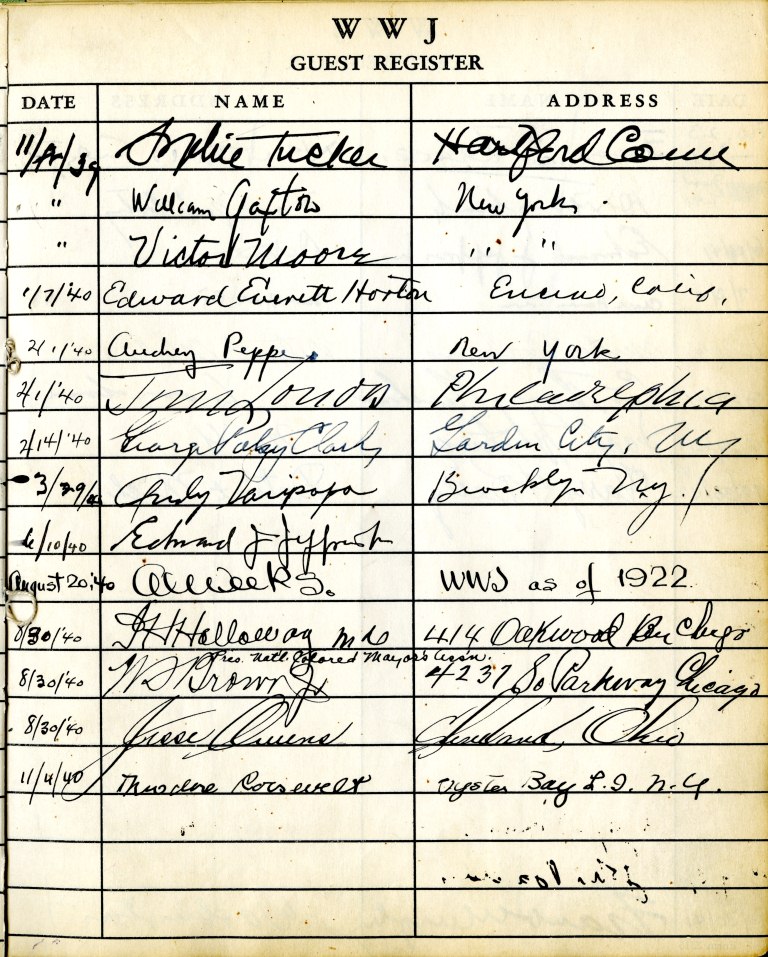 WWJ
GUEST REGISTER
DATE NAME ADDRESS
11/12/39 Sophie Tucker Hartford Conn
" William Gaxton New York.
" Victor Moore " "
1/7/'40 Edward Everett Horton Encino, Calif.
2/1/'40 Audrey Peppe New York
2/1/'40 Philadelphia
2/14/'40 George Clark Garden City, NY
3/29/40 Andy Varipapa Brooklyn N.Y.
6/10/40 Edward J Jeffries
August 20, '40 WWJ as of 1922.
8/30/'40 Holloway MD 414 Oakwood Chicago
Pres. Natl. Colored Mayors Assn.
8/30/'40 Brown Jr 4237 So Parkway Chicago
8/30/'40 Jesse Owens Cleveland, Ohio
11/4/40 Theodore Roosevelt Oyster Bay L.I. N.Y.